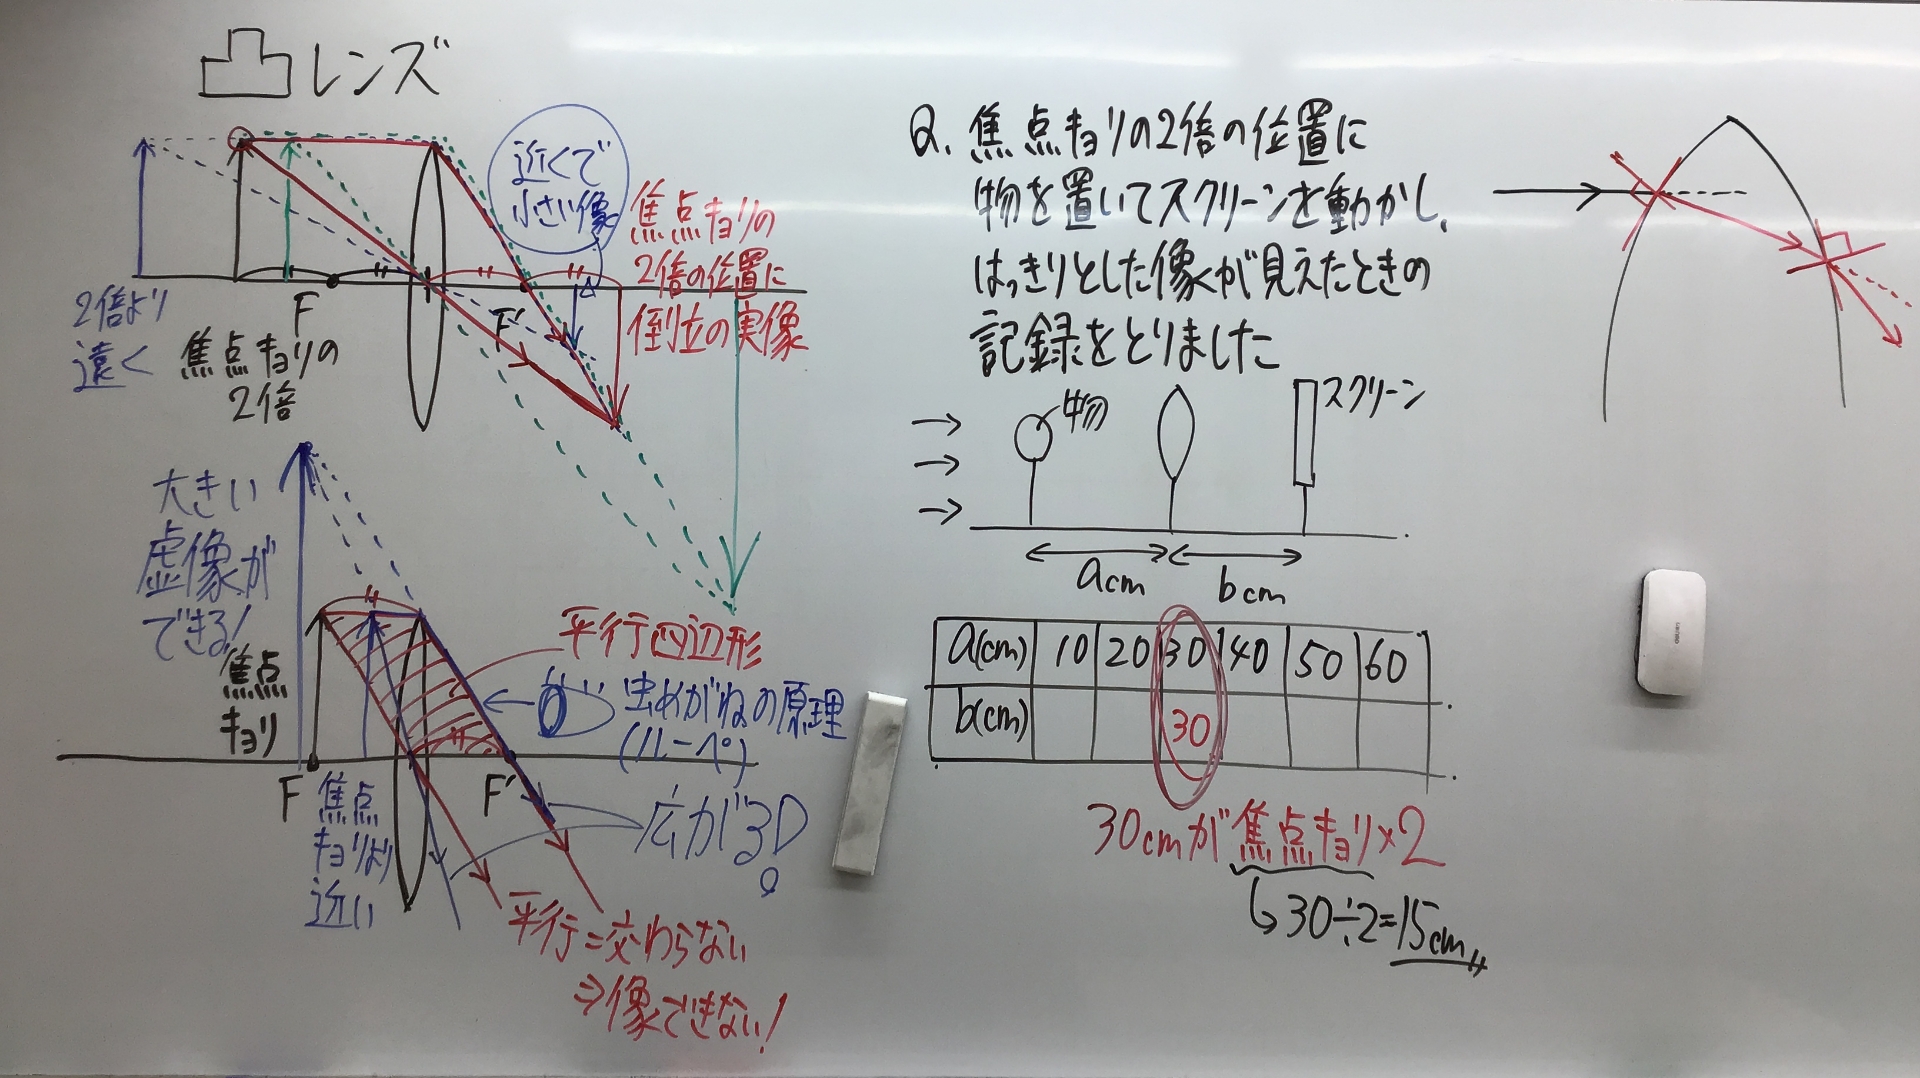 凸レンズ
近くで
小さい像
焦点キョリの
2倍の位置に
倒立の実像
2倍より
遠く
F
焦点キョリの
2倍
F'
大きい
虚像が
できる!
焦点
キョリ
平行四辺形
虫めがねの原理
(ルーペ)
F
焦点
キョリより
近い
F'
広がる
平行=交わらない
⇒像できない!
Q. 焦点キョリの2倍の位置に
物を置いてスクリーンを動かし、
はっきりとした像が見えたときの
記録をとりました
物
スクリーン
acm
bcm
a(cm) 10 20 30 40 50 60
b(cm) 30
30cmが焦点キョリ×2
↳30÷2=15cm